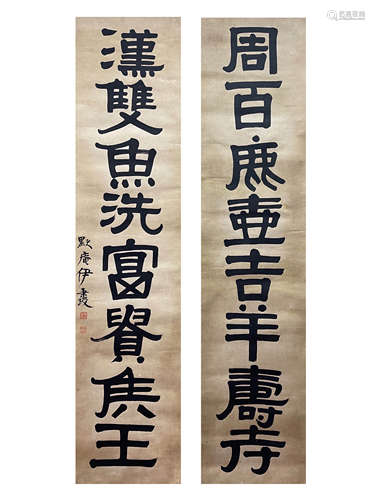 周百鹿壺吉羊壽寺
漢雙魚洗富貴侯王
默庵伊